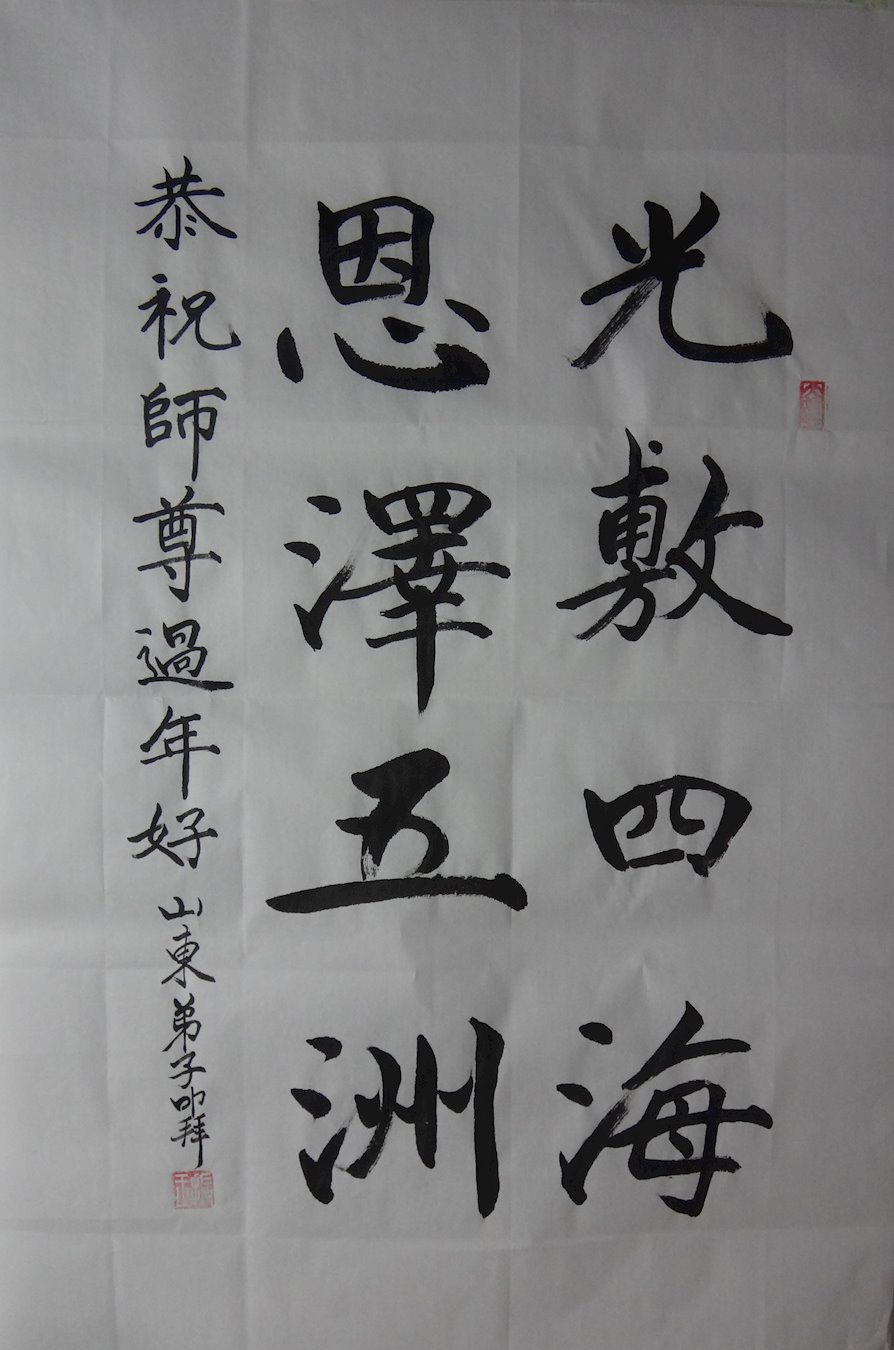 光敷四海
恩澤五洲
恭祝師尊過年好
山東弟子叩拜